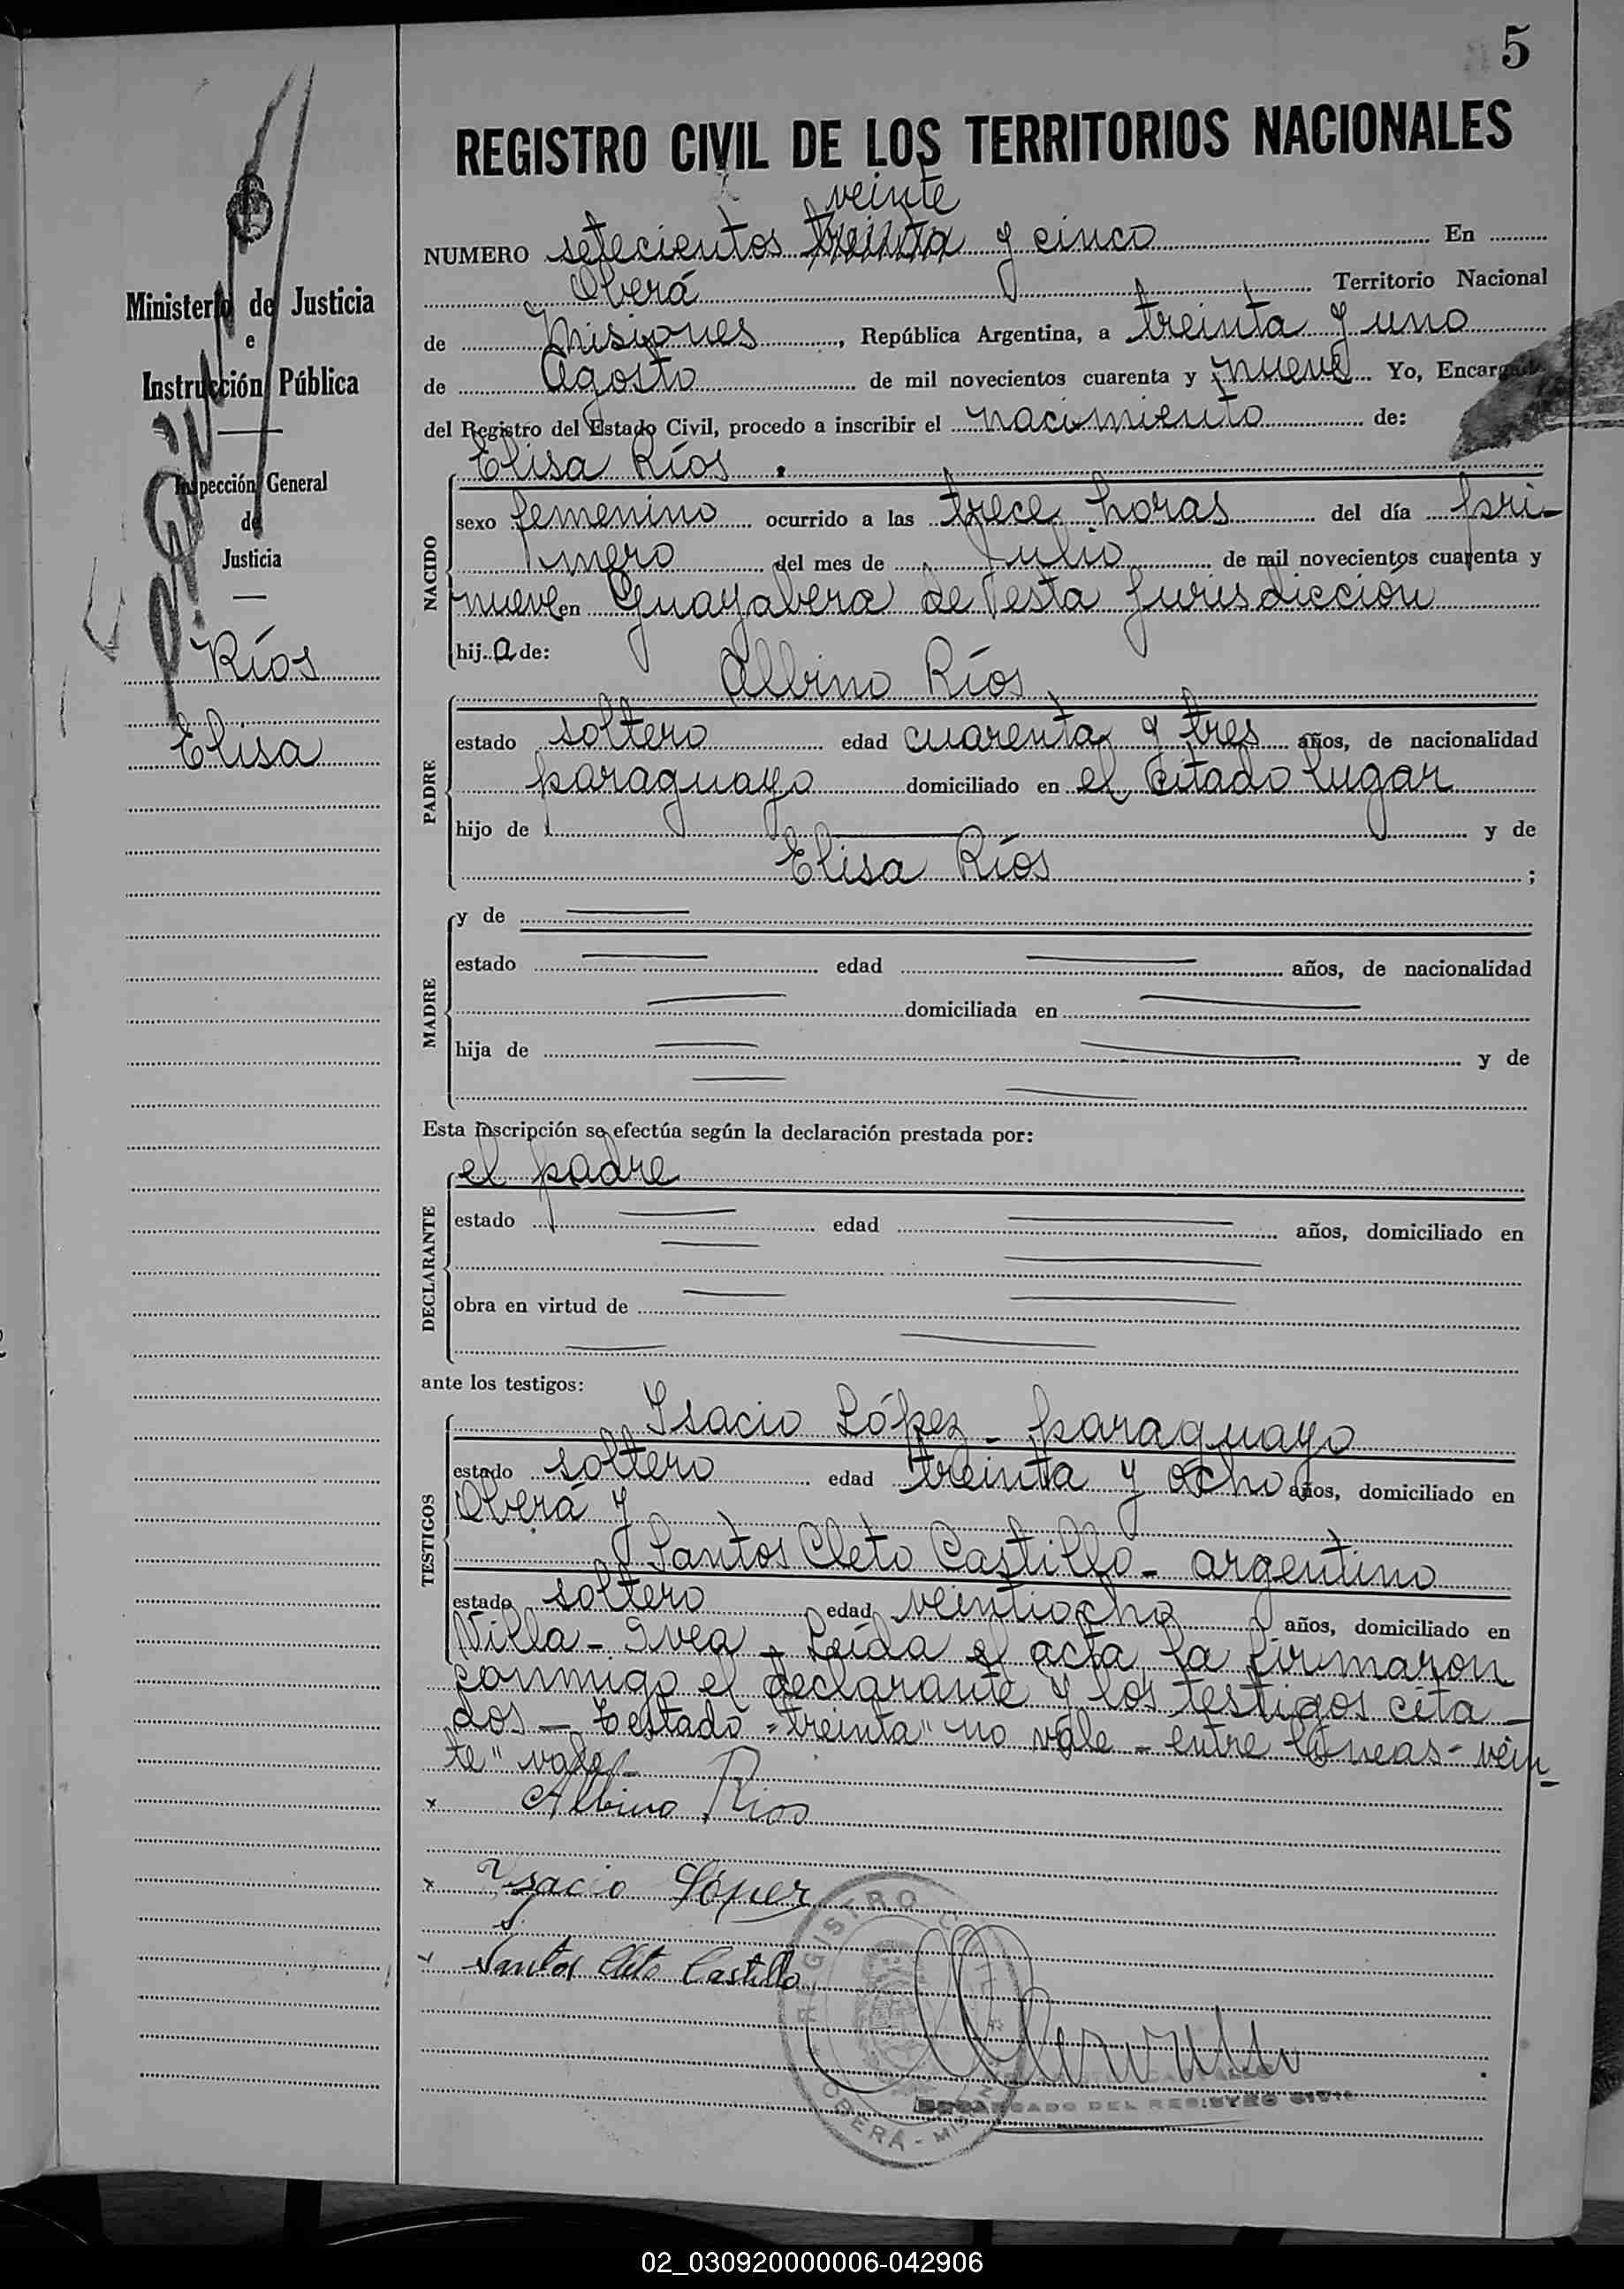 5
REGISTRO CIVIL DE LOS TERRITORIOS NACIONALES
veinte
NUMERO setecientos treinta y cinco En
Oberá Territorio Nacional
de Misiones, República Argentina, a treinta y uno
de Agosto de mil novecientos cuarenta y nueve Yo, Encargado
del Registro del Estado Civil, procedo a inscribir el nacimiento de:
Elisa Ríos.
NACIDO
sexo femenino ocurrido a las trece horas del día pri-
mero del mes de Julio de mil novecientos cuarenta y
nueve en Guayabera de esta Jurisdicción
hija de:
Albino Ríos
PADRE
estado soltero edad cuarenta y tres años, de nacionalidad
paraguayo domiciliado en el citado lugar
hijo de y de
Elisa Ríos ;
MADRE
y de
estado edad años, de nacionalidad
domiciliada en
hija de y de
Esta inscripción se efectúa según la declaración prestada por:
el padre
DECLARANTE
estado edad años, domiciliado en
obra en virtud de
ante los testigos:
Isacio López - paraguayo
TESTIGOS
estado soltero edad treinta y ocho años, domiciliado en
Oberá y
Santos Cleto Castillo - argentino
estado soltero edad veintiocho años, domiciliado en
Villa - Svea - Leída el acta, la firmaron
conmigo el declarante y los testigos cita-
dos - Testado "treinta" no vale - entre líneas - vein-
te" vale -
x Albino Rios
x Ysacio López
x Santos Cleto Castillo
REGISTRO CIVIL
OBERÁ - MISIONES
ENCARGADO DEL REGISTRO CIVIL
Ministerio de Justicia
e
Instrucción Pública
Inspección General
de
Justicia
Ríos
Elisa
02_030920000006-042906